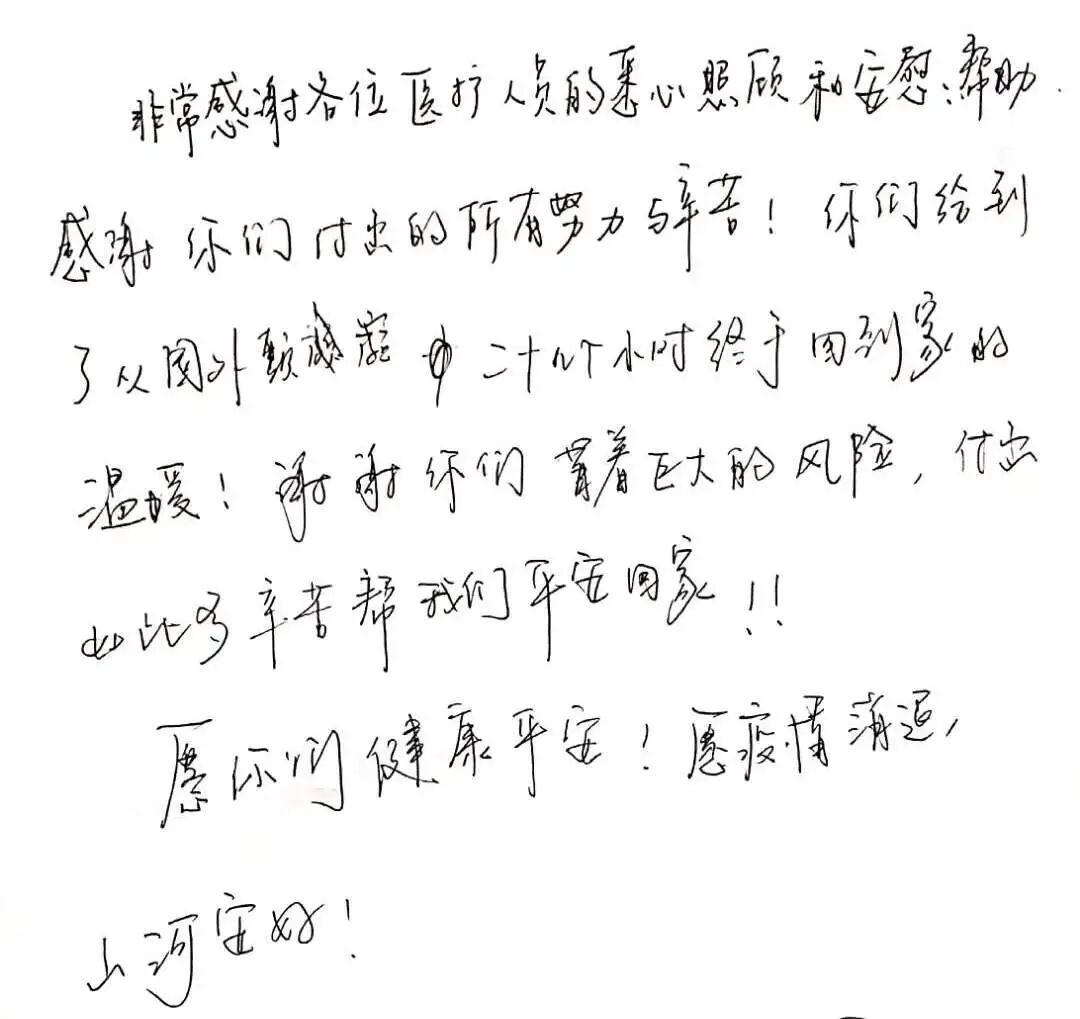 非常感谢各位医护人员的悉心照顾和安慰、帮助.
感谢你们付出的所有努力与辛苦！你们给到
了从国外颠 二十几个小时终于回到家的
温暖！谢谢你们冒着巨大的风险，付出
如此多辛苦帮我们平安回家！！
愿你们健康平安！愿疫情消退，
山河安好！